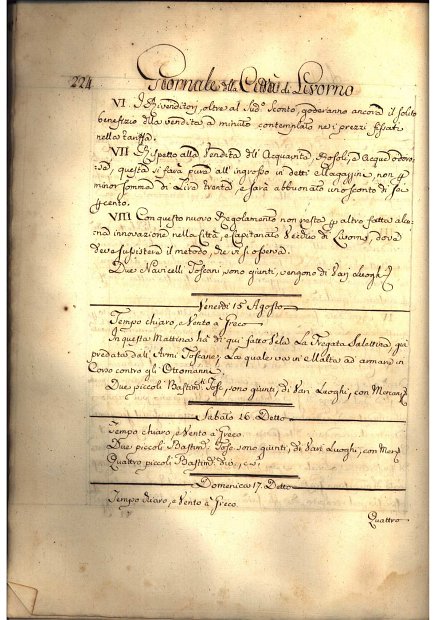 224 Giornale della Città di Livorno
VI. I Rivenditori, oltre al Sud.º Sconto, goderanno ancora il solito
benefizio della vendita a minuto contemplato nei prezzi fissati
nella tariffa.
VII. Rispetto alla Vendita dell' Acquavita, Rosoli, e Acque odoro-
se, questa si farà pure all' ingrosso in detti Magazzini, non p
minor somma di Lire trenta, e sarà abbuonato uno sconto di Sei
p cento.
VIII. Con questo nuovo Regolamento non resta p altro fatta alcu-
na innovazione nella Città, e Capitanato Vecchio di Livorno, dove
deve sussistere il metodo, che vi si osserva.
Due Navicelli Toscani, sono giunti, vengono di Vari Luoghi
Venerdì 15 Agosto
Tempo chiaro, e Vento a Greco
In questa Mattina ha di qui fatto Vela La Fregata Salettina, qui
predata dall' Armi Toscane; La quale va in Malta ad armare in
Corso contro gli Ottomanni.
Due piccoli Bastim.ti Tos.e, sono giunti, di Vari Luoghi, con Mercanz
Sabato 26. Detto
Tempo chiaro, e Vento a Greco.
Due piccoli Bastim.i Tos.e sono giunti, di Vari Luoghi, con Merz
Quattro piccoli Bastim.i
Domenica 17. Detto
Tempo chiaro, e Vento a Greco.
Quattro